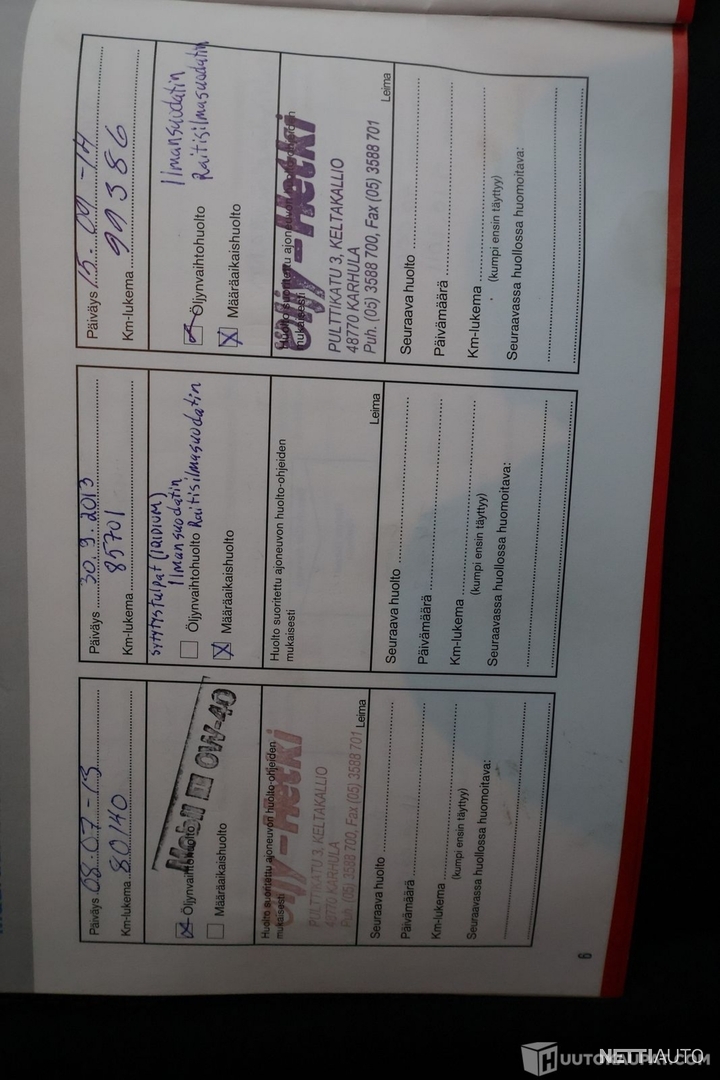 Päiväys 08-07-13
Km-lukema 80140
Öljynvaihtohuolto
Mobil 1 0W-40
Määräaikaishuolto
Huolto suoritettu ajoneuvon huolto-ohjeiden
mukaisesti
Öljy-Hetki
PULTTIKATU 3, KELTAKALLIO
48770 KARHULA
Puh. (05) 3588 700, Fax (05) 3588 701
Leima
Seuraava huolto
Päivämäärä
Km-lukema
(kumpi ensin täyttyy)
Seuraavassa huollossa huomoitava:
Päiväys 30.9.2013
Km-lukema 85701
sytytystulpat (IRIDIUM)
Ilmansuodatin
Öljynvaihtohuolto Raitisilmasuodatin
Määräaikaishuolto
Huolto suoritettu ajoneuvon huolto-ohjeiden
mukaisesti
Leima
Seuraava huolto
Päivämäärä
Km-lukema
(kumpi ensin täyttyy)
Seuraavassa huollossa huomoitava:
Päiväys 15-09-14
Km-lukema 99386
Ilmansuodatin
Öljynvaihtohuolto Raitisilmasuodatin
Määräaikaishuolto
Huolto suoritettu ajoneuvon huolto-ohjeiden
mukaisesti
Öljy-Hetki
PULTTIKATU 3, KELTAKALLIO
48770 KARHULA
Puh. (05) 3588 700, Fax (05) 3588 701
Leima
Seuraava huolto
Päivämäärä
Km-lukema
(kumpi ensin täyttyy)
Seuraavassa huollossa huomoitava:
6
HUUTOKAUPAT.COM
NETTIAUTO